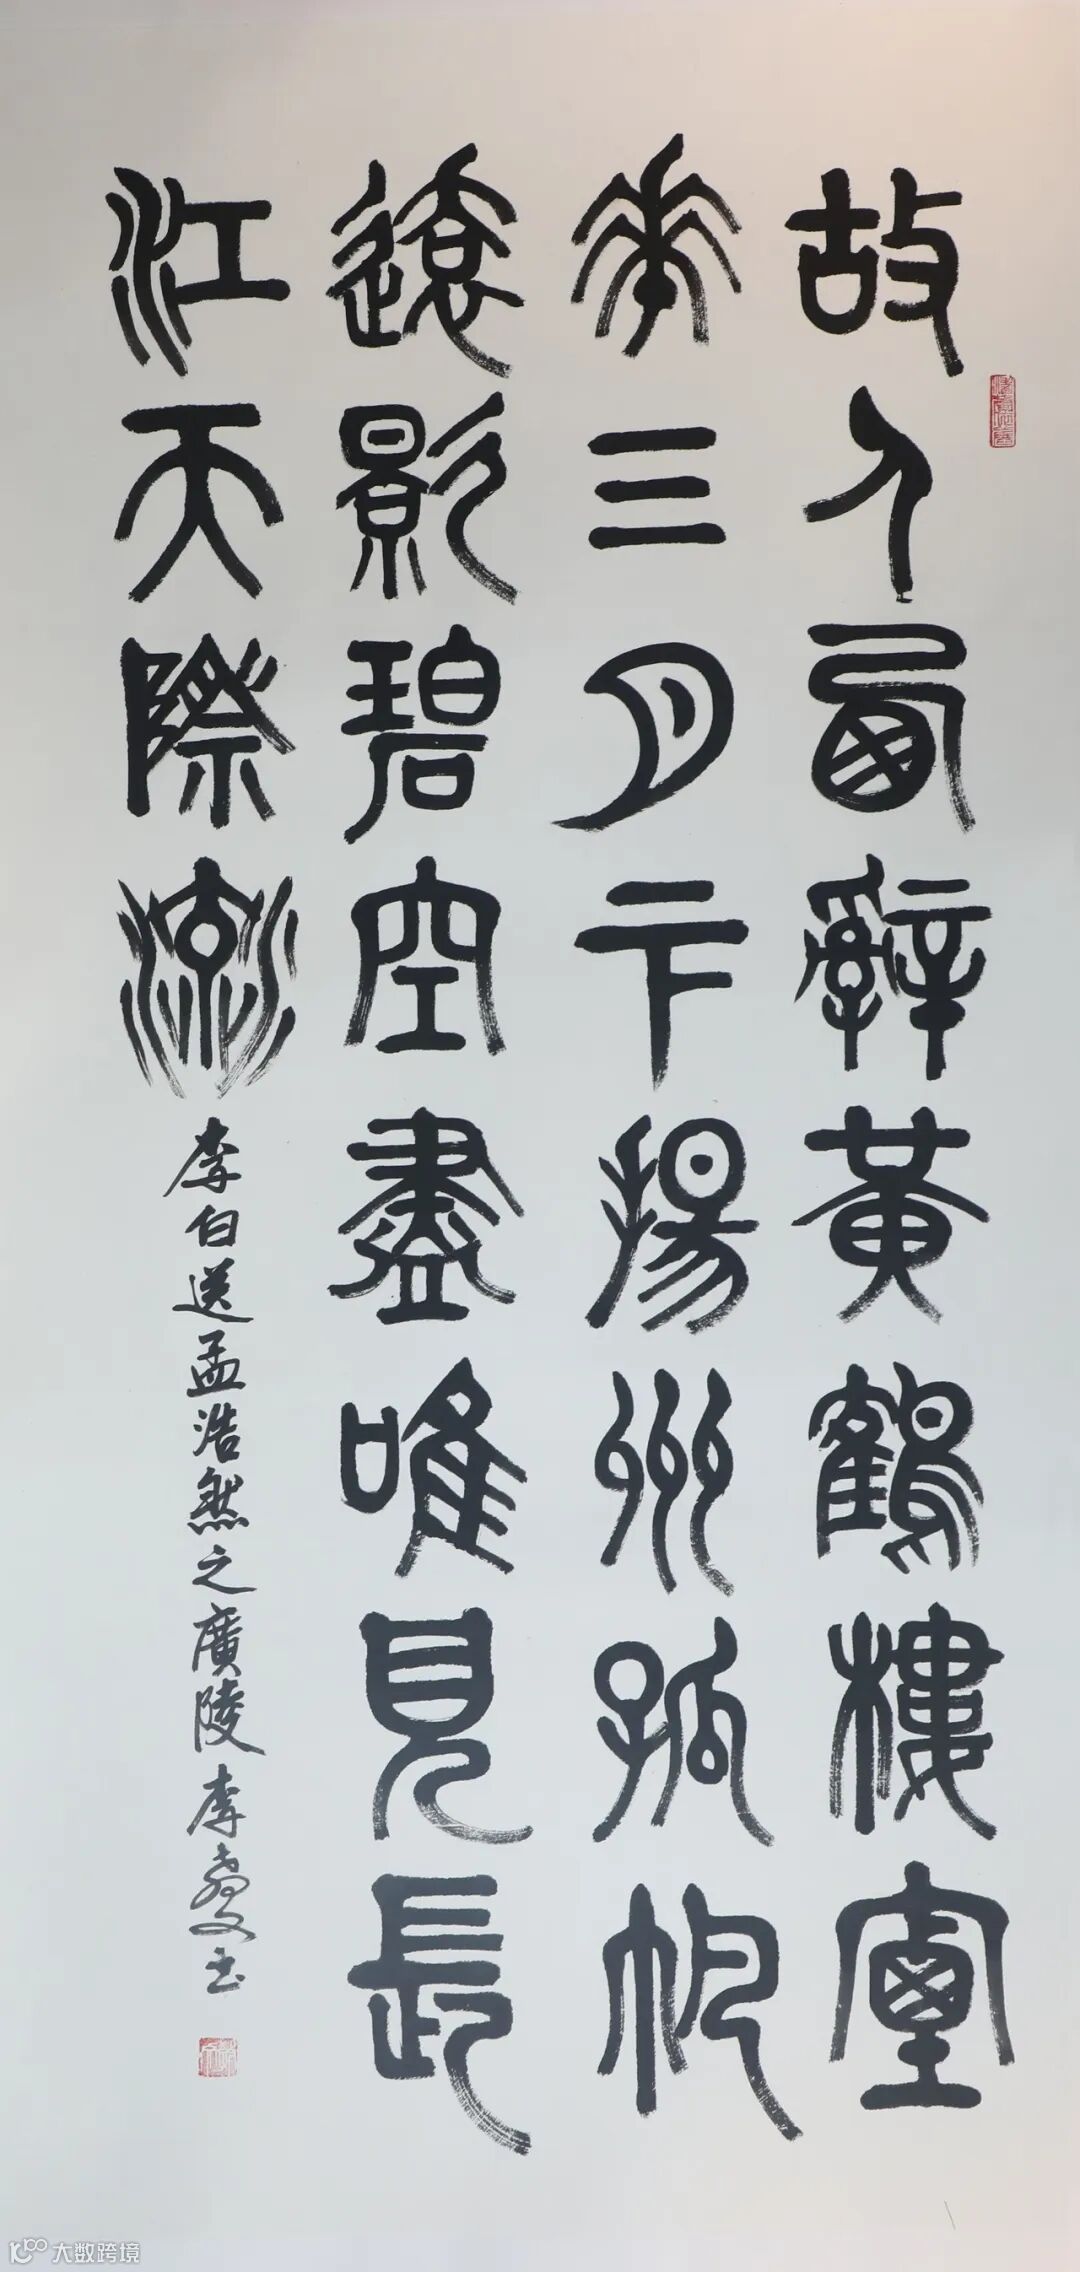 故人西辭黃鶴樓煙
華三月下揚州孤帆
遠影碧空盡唯見長
江天際流
李白送孟浩然之廣陵 李 书
大数跨境